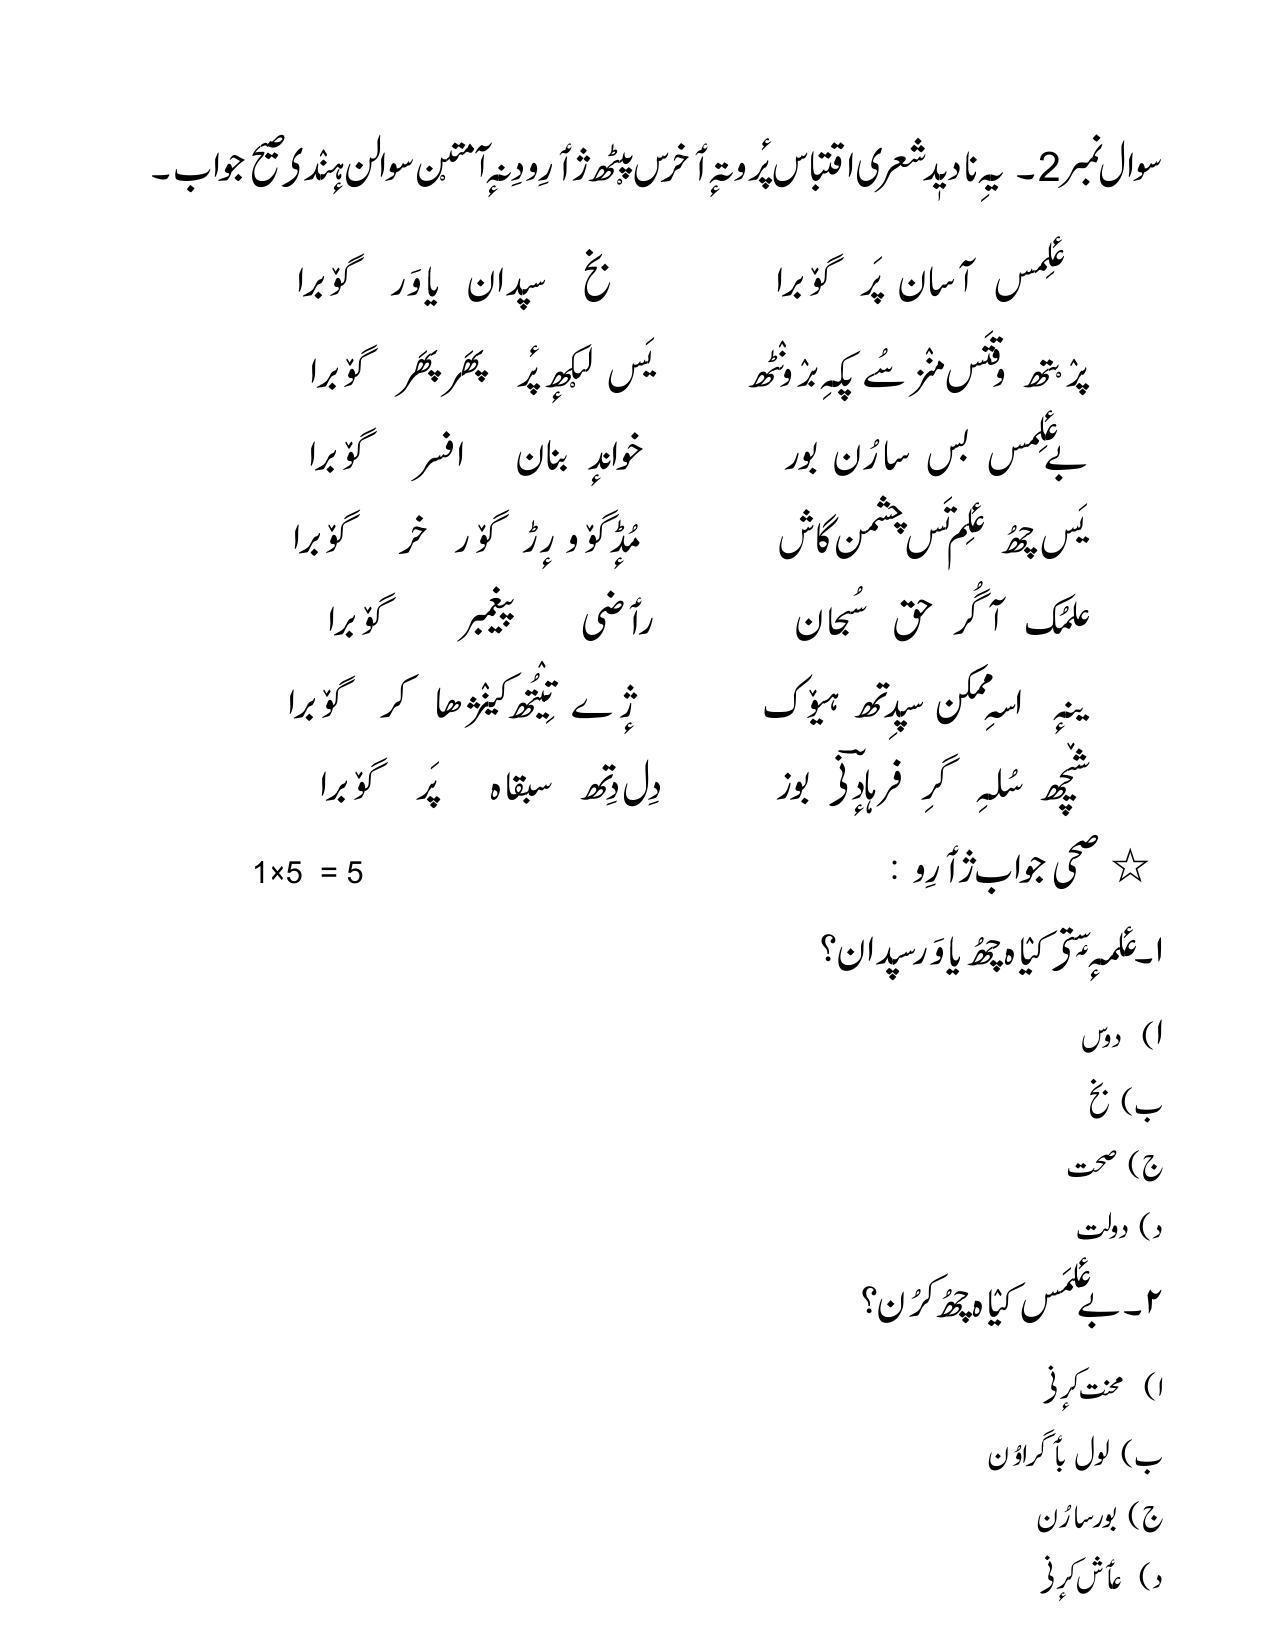 سوال نمبر2۔ یہِ نادیٖد شعری اقتباس پٔرِو تہٕ ٲخرس پؠٹھ ژٲرِو دِنہٕ آمتؠن سوالن ہٕنٛدی صحیح جواب۔
عٔلِمس آسان پَر گوٚبرا بخ سپدان یاوَر گوٚبرا
پرٛؠتھ وقتَس منٛز سُے پکہِ برٛونٛٹھ یَس لیکھہٕ پٔر پھَر پھَر گوٚبرا
بےعٔلِمس بس سارُن بور خواندٕ بنان افسر گوٚبرا
یَس چھُ عٔلِم تَس چشمن گاش مُڈٕ گوٚو رٕژ گوٚر خر گوٚبرا
علمُک آگُر حق سُبحان رٲضی پیغمبر گوٚبرا
ینہٕ اسہِ ممکن سپدِتھ ہیوٚک ژٕے تِیُٛتھ کینٛژھا کر گوٚبرا
شچھ سُلہِ گرِ فرہادٕنؠ بوز دِل دِتھ سبقاہ پَر گوٚبرا
☆ صحی جواب ژٲرِو : 1×5 = 5
ا۔عٔلمہٕ ستۍ کیٛاہ چھُ یاوَر سپدان؟
ا) دوس
ب) بخ
ج) صحت
د) دولت
۲۔بےعٔلمَس کیٛاہ چھُ کرُن؟
ا) محنت کرٕنؠ
ب) لول بٲگراوُن
ج) بورسارُن
د) عٲش کرٕنؠ